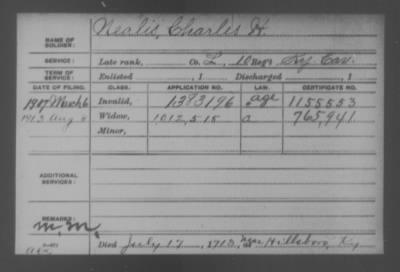 NAME OF SOLDIER: Nealis, Charles H.
SERVICE: Late rank, Co. L, 10 Reg't Ky. Cav.
TERM OF SERVICE: Enlisted , 1 Discharged , 1
DATE OF FILING. CLASS. APPLICATION NO. LAW. CERTIFICATE NO.
1907 March 6 Invalid, 1383196 age 1155553
1913 Aug Widow, 1,012,515 a 765,941
Minor,
ADDITIONAL SERVICES:
REMARKS:
m.m.
Died July 17, 1913, near Hillsboro, Ky